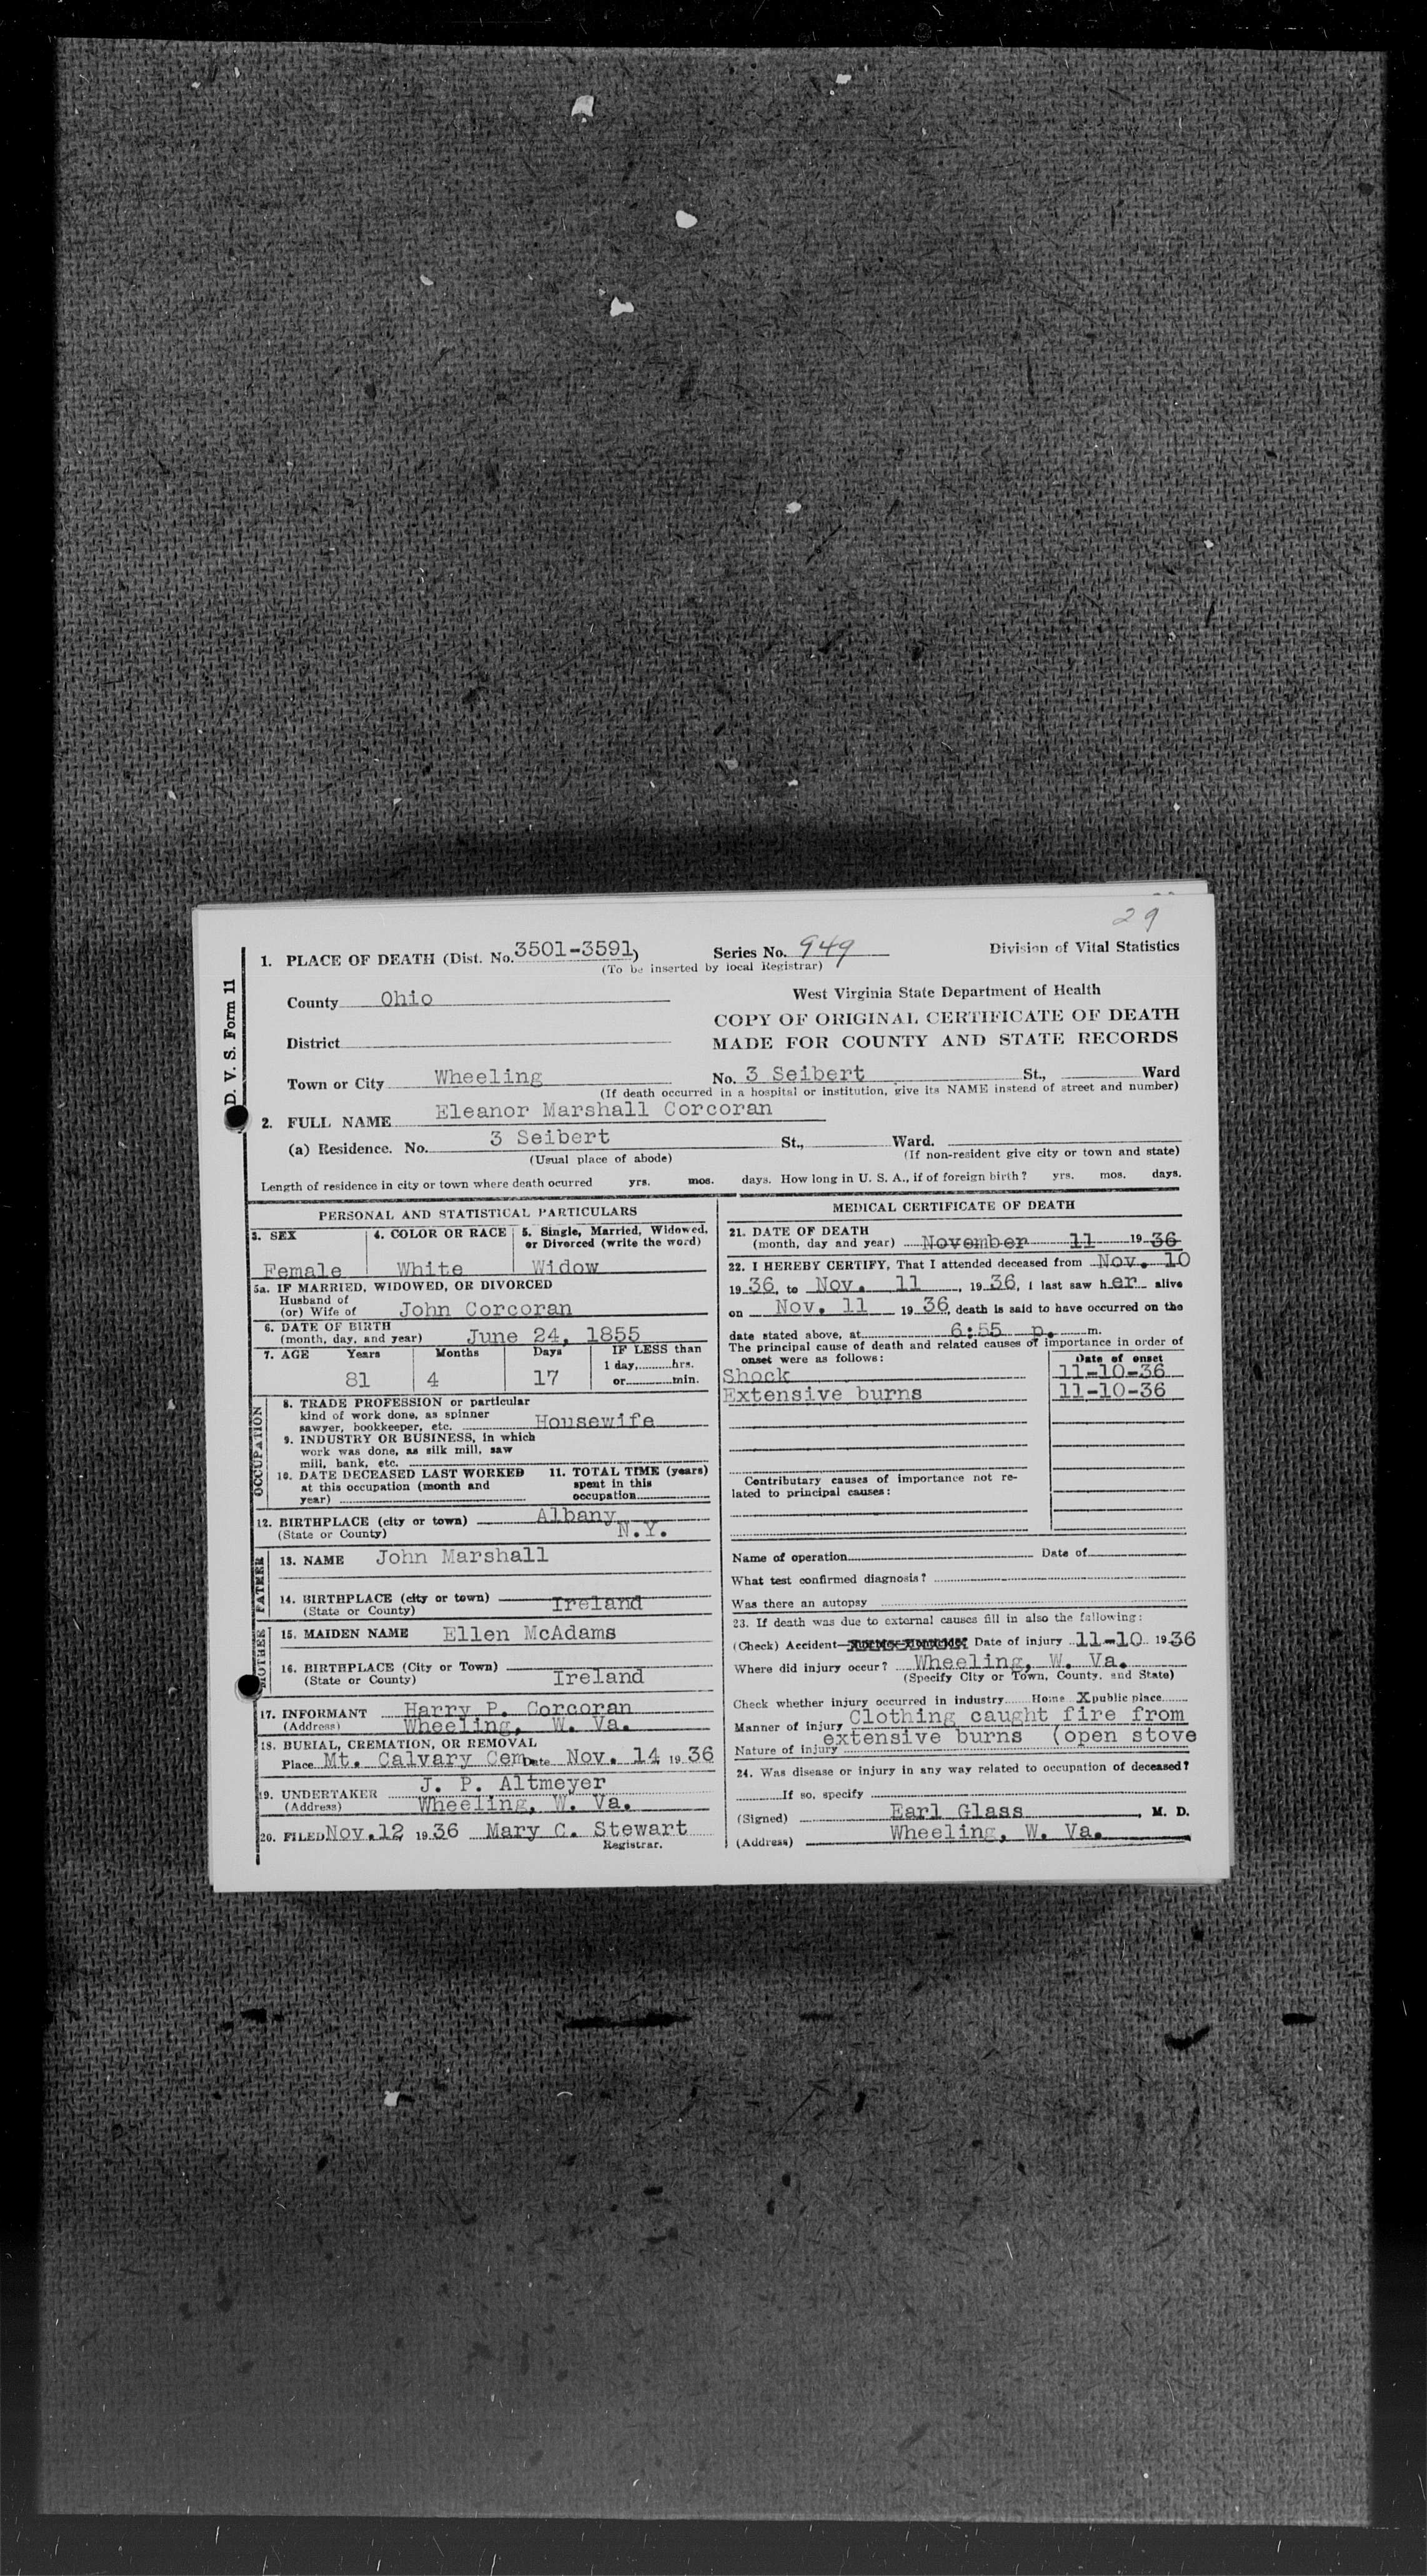 29
D. V. S. Form 11
1. PLACE OF DEATH (Dist. No. 3501-3591)
Series No. 949
(To be inserted by local Registrar)
Division of Vital Statistics
County Ohio
West Virginia State Department of Health
COPY OF ORIGINAL CERTIFICATE OF DEATH
MADE FOR COUNTY AND STATE RECORDS
District
Town or City Wheeling No. 3 Seibert St., Ward
(If death occurred in a hospital or institution, give its NAME instead of street and number)
2. FULL NAME Eleanor Marshall Corcoran
(a) Residence. No. 3 Seibert St., Ward.
(Usual place of abode) (If non-resident give city or town and state)
Length of residence in city or town where death ocurred yrs. mos. days. How long in U. S. A., if of foreign birth? yrs. mos. days.
PERSONAL AND STATISTICAL PARTICULARS
3. SEX 4. COLOR OR RACE 5. Single, Married, Widowed, or Divorced (write the word)
Female White Widow
5a. IF MARRIED, WIDOWED, OR DIVORCED
Husband of
(or) Wife of John Corcoran
6. DATE OF BIRTH
(month, day, and year) June 24, 1855
7. AGE Years Months Days IF LESS than
1 day, hrs.
81 4 17 or min.
OCCUPATION
8. TRADE PROFESSION or particular
kind of work done, as spinner
sawyer, bookkeeper, etc. Housewife
9. INDUSTRY OR BUSINESS, in which
work was done, as silk mill, saw
mill, bank, etc.
10. DATE DECEASED LAST WORKED
at this occupation (month and
year)
11. TOTAL TIME (years)
spent in this
occupation
12. BIRTHPLACE (city or town) Albany
(State or County) N.Y.
FATHER
13. NAME John Marshall
14. BIRTHPLACE (city or town) Ireland
(State or County)
MOTHER
15. MAIDEN NAME Ellen McAdams
16. BIRTHPLACE (City or Town)
(State or County) Ireland
17. INFORMANT Harry P. Corcoran
(Address) Wheeling, W. Va.
18. BURIAL, CREMATION, OR REMOVAL
Place Mt. Calvary Cem Date Nov. 14 1936
19. UNDERTAKER J. P. Altmeyer
(Address) Wheeling, W. Va.
20. FILED Nov. 12 1936 Mary C. Stewart
Registrar.
MEDICAL CERTIFICATE OF DEATH
21. DATE OF DEATH
(month, day and year) November 11 1936
22. I HEREBY CERTIFY, That I attended deceased from Nov. 10
1936, to Nov. 11, 1936, I last saw her alive
on Nov. 11 1936, death is said to have occurred on the
date stated above, at 6:55 p. m.
The principal cause of death and related causes of importance in order of
onset were as follows: Date of onset
Shock 11-10-36
Extensive burns 11-10-36
Contributary causes of importance not re-
lated to principal causes:
Name of operation Date of
What test confirmed diagnosis?
Was there an autopsy
23. If death was due to external causes fill in also the following:
(Check) Accident Date of injury 11-10 1936
Where did injury occur? Wheeling, W. Va.
(Specify City or Town, County, and State)
Check whether injury occurred in industry Home X public place
Manner of injury Clothing caught fire from
Nature of injury extensive burns (open stove
24. Was disease or injury in any way related to occupation of deceased?
If so, specify
(Signed) Earl Glass, M. D.
(Address) Wheeling, W. Va.